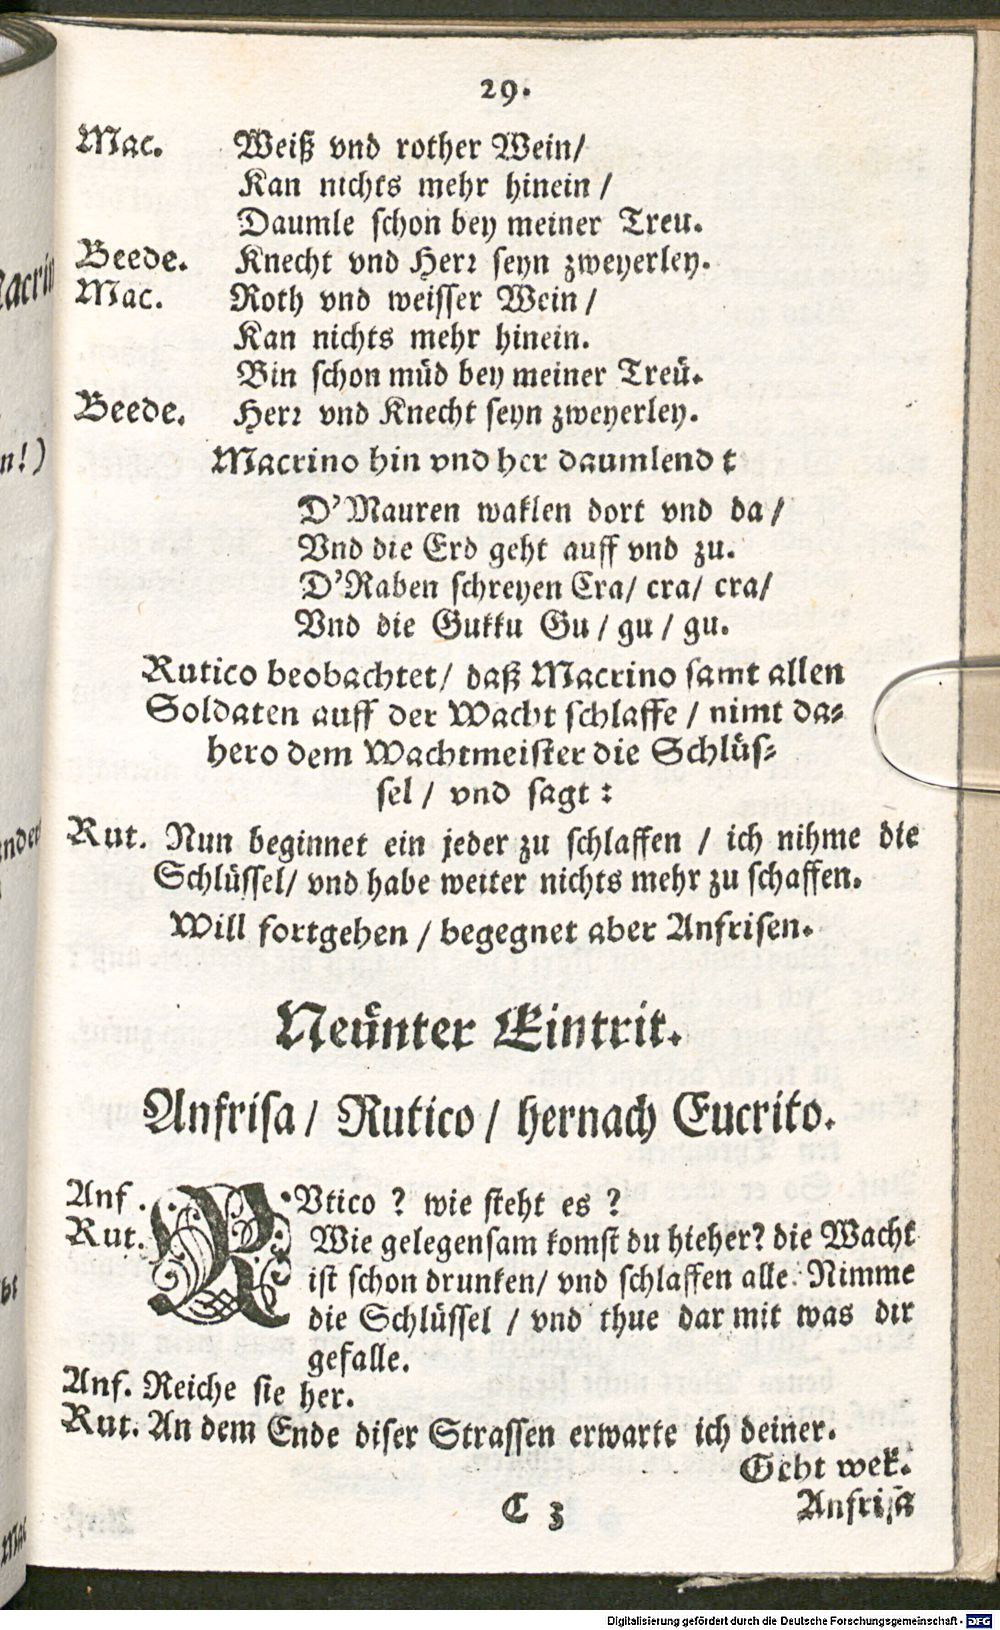 29.
Mac. Weiß vnd rother Wein/
Kan nichts mehr hinein /
Daumle schon bey meiner Treu.
Beede. Knecht vnd Herr seyn zweyerley.
Mac. Roth vnd weisser Wein /
Kan nichts mehr hinein.
Bin schon müd bey meiner Treü.
Beede. Herr vnd Knecht seyn zweyerley.
Macrino hin vnd her daumlend :
D'Mauren waklen dort vnd da /
Vnd die Erd geht auff vnd zu.
D'Raben schreyen Cra/ cra/ cra/
Vnd die Gukku Gu / gu / gu.
Rutico beobachtet/ daß Macrino samt allen
Soldaten auff der Wacht schlaffe / nimt da-
hero dem Wachtmeister die Schlüs-
sel / vnd sagt :
Rut. Nun beginnet ein jeder zu schlaffen / ich nihme die
Schlüssel/ vnd habe weiter nichts mehr zu schaffen.
Will fortgehen / begegnet aber Anfrisen.
Neünter Eintrit.
Anfrisa / Rutico / hernach Eucrito.
Anf. RVtico ? wie steht es ?
Rut. Wie gelegensam komst du hieher? die Wacht
ist schon drunken/ vnd schlaffen alle. Nimme
die Schlüssel / vnd thue darmit was dir
gefalle.
Anf. Reiche sie her.
Rut. An dem Ende diser Strassen erwarte ich deiner.
Geht wek.
C 3 Anfrisa
Digitalisierung gefördert durch die Deutsche Forschungsgemeinschaft - DFG